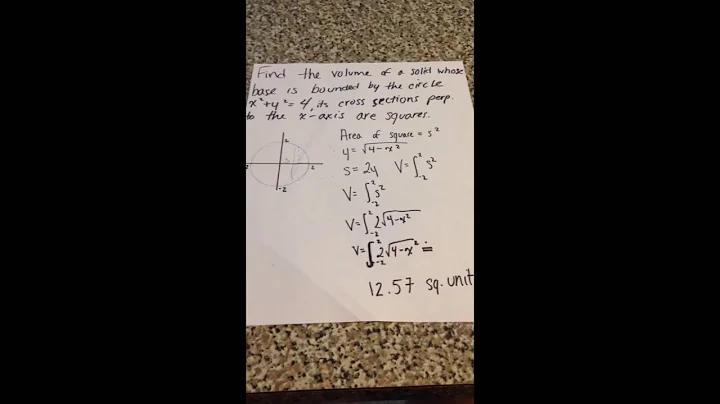 Find the volume of a solid whose
base is bounded by the circle
x²+y²=4, its cross sections perp.
to the x-axis are squares.
Area of square = s²
y = √4-x²
s = 2y V = ∫₋₂² s²
V = ∫₋₂² s²
V = ∫₋₂² 2√4-x²
V = ∫₋₂² 2√4-x² ≐
12.57 sq. unit
2
-2
2
2